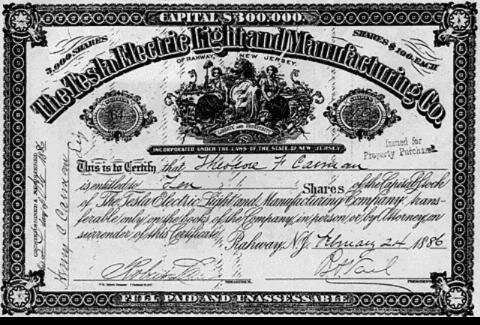 CAPITAL $300.000.
3,000 SHARES
SHARES $100. EACH
The Tesla Electric Light and Manufacturing Co.
OF RAHWAY, NEW JERSEY.
LIBERTY AND PROSPERITY
INCORPORATED UNDER THE LAWS OF THE STATE OF NEW JERSEY
Issued for
Property Purchased
This is to Certify that Theodore F Carman
is entitled to Ten Shares of the Capital Stock
of The Tesla Electric Light and Manufacturing Company, trans-
ferable only on the books of the Company, in person, or by Attorney, on
surrender of this Certificate. Rahway, N.J. February 24 1886
PRESIDENT
FULL PAID AND UNASSESSABLE